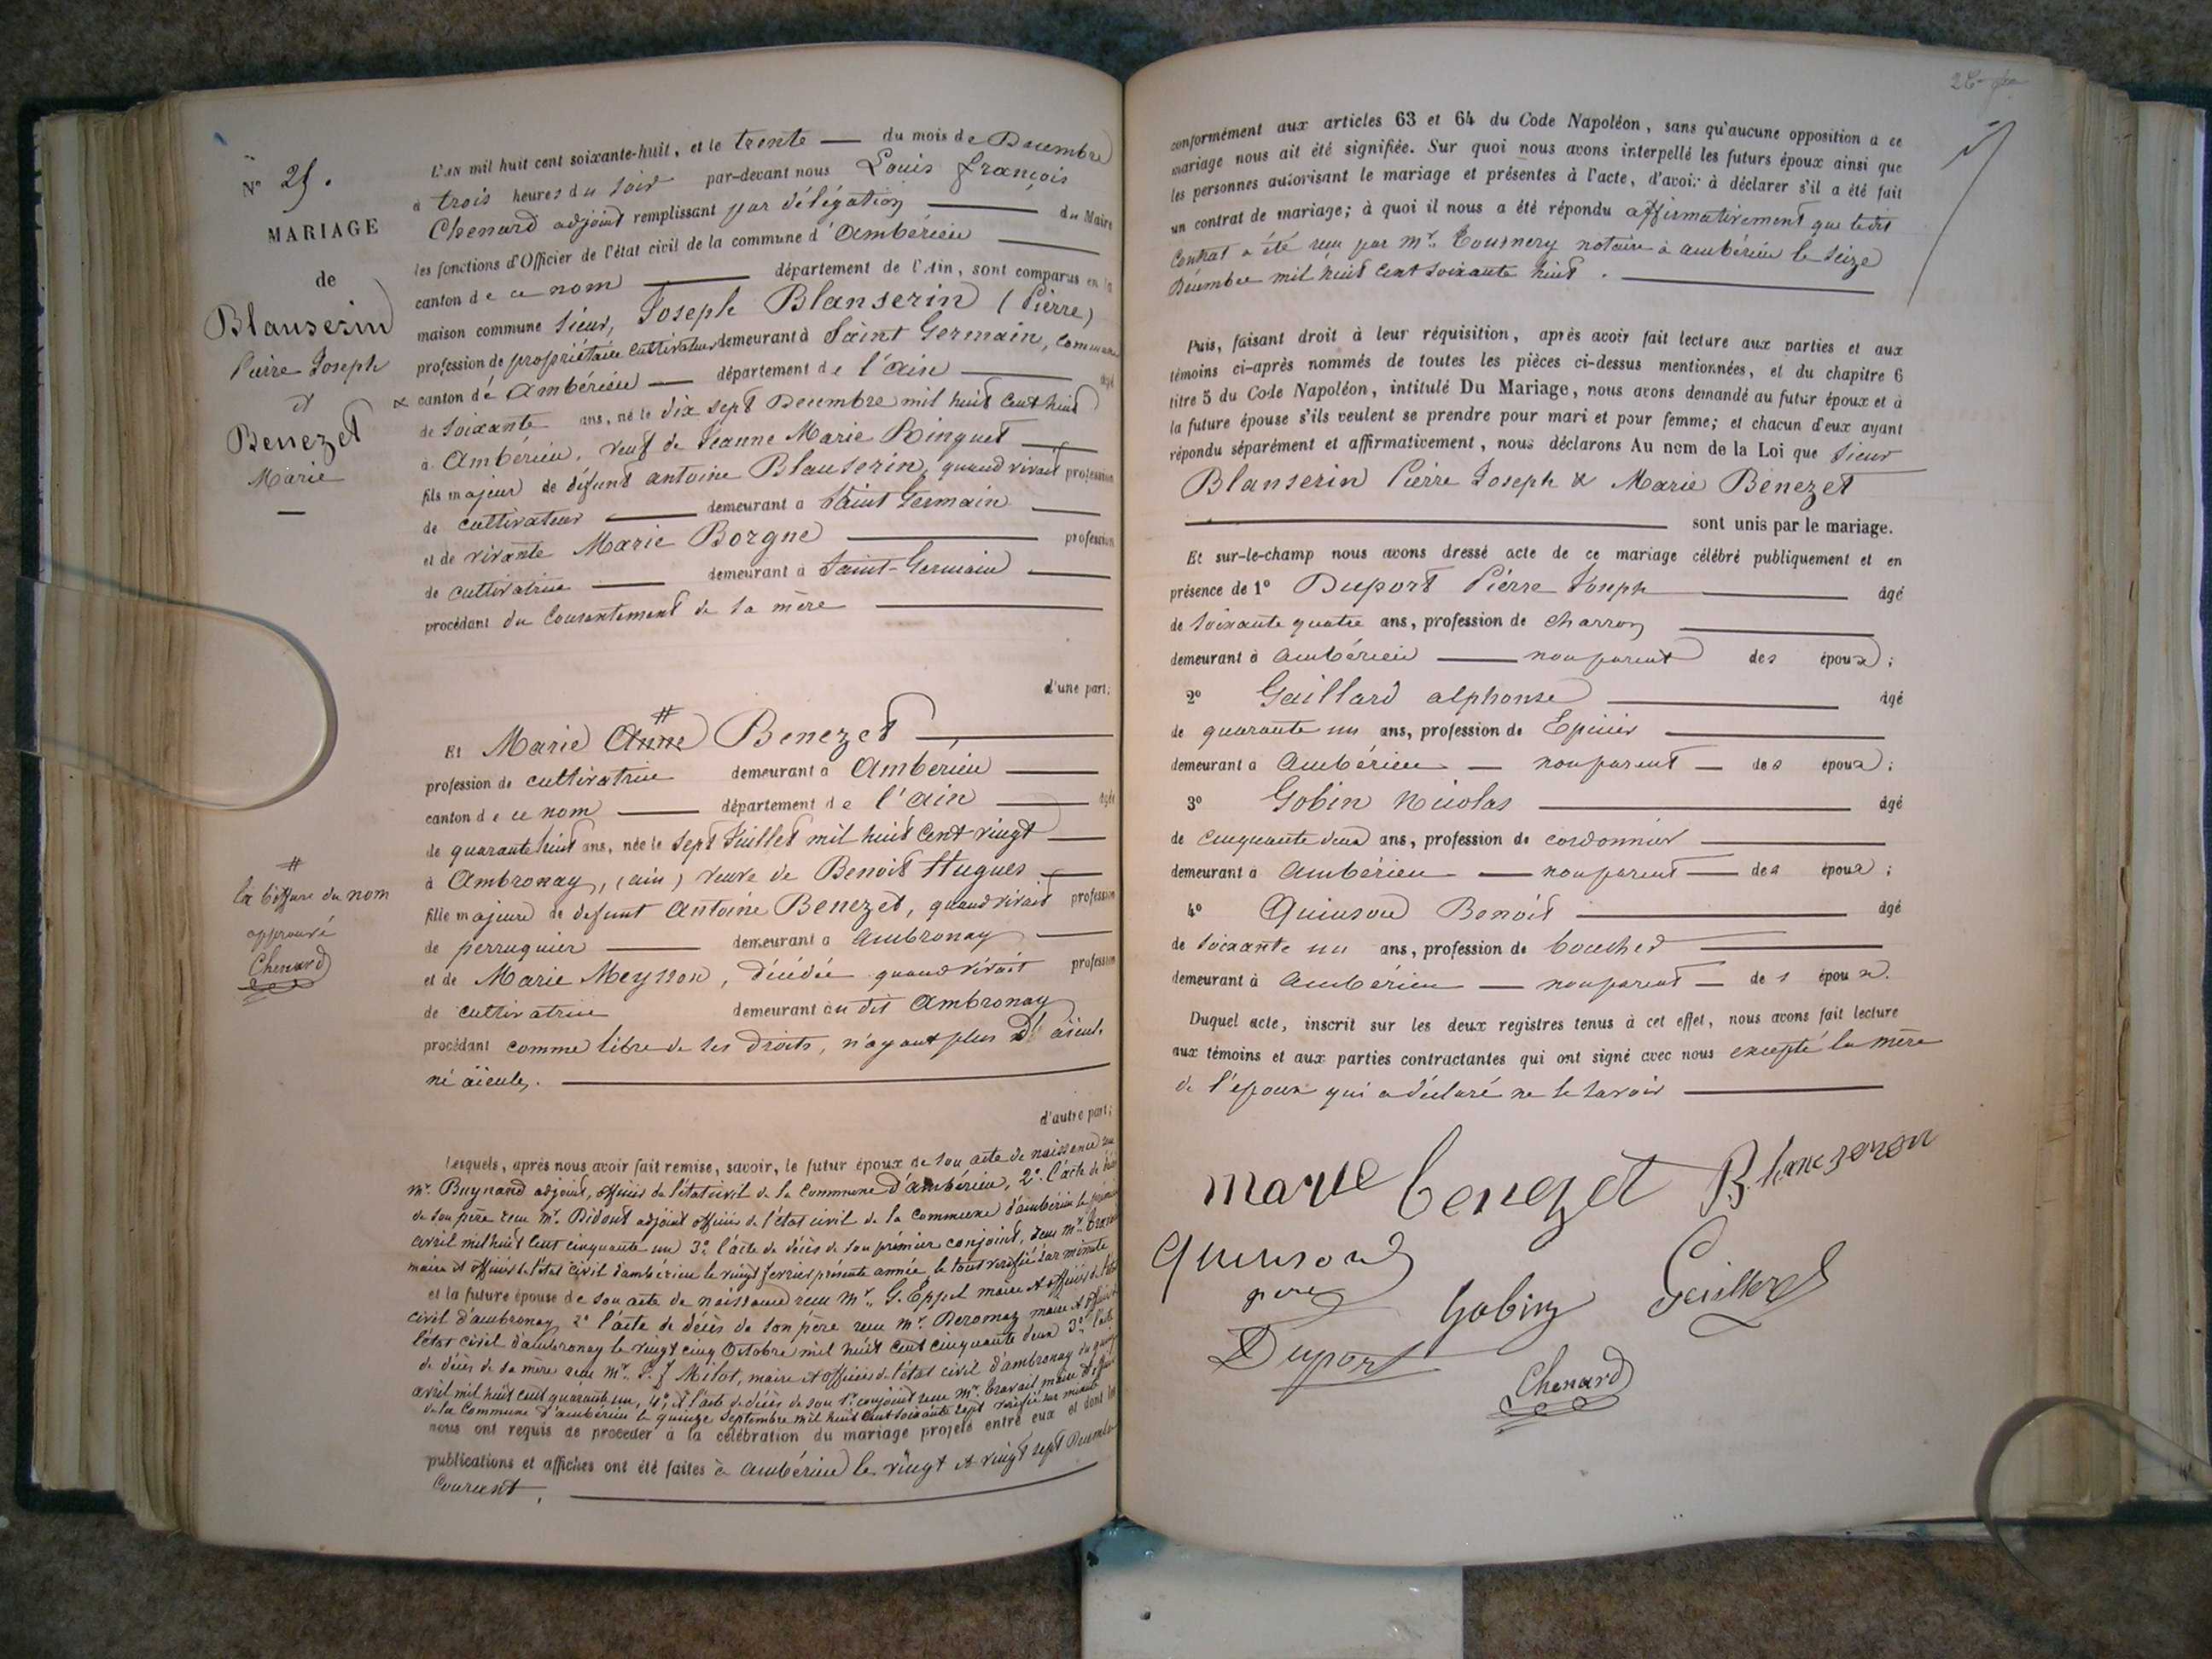 N° 25.
MARIAGE
de
Blanserin
Pierre Joseph
et
Benezet
Marie
L'AN mil huit cent soixante-huit, et le trente du mois de Décembre
à trois heures du soir par-devant nous Louis françois
Chenard adjoint remplissant par délégation du Maire
les fonctions d'Officier de l'état civil de la commune d'Ambérieu
canton de ce nom département de l'Ain, sont comparus en la
maison commune Sieur, Joseph Blanserin (Pierre)
profession de propriétaire Cultivateur demeurant à Saint Germain, commune
& canton dé Ambérieu département de l'ain âgé
de Soixante ans, né le dix sept Décembre mil huit cent huit
à Ambérieu. veuf de Jeanne Marie Ringuet
fils majeur de défunt antoine Blanserin, quand vivait profession
de cultivateur demeurant à Saint Germain
et de vivante Marie Borgne profession
de cultivatrice demeurant à Saint-Germain
procédant du Consentement de sa mère
d'une part;
Et Marie Anne # Benezet
profession de cultivatrice demeurant à Ambérieu
canton de ce nom département de l'ain âgée
de quarante huit ans, née le sept Juillet mil huit cent vingt
à Ambronay, (ain) veuve de Benoit Hugues
fille majeure de defunt Antoine Benezet, quand vivait profession
de perruquier demeurant à Ambronay
et de Marie Meysson, décédée quand vivait profession
de cultivatrice demeurant au dit Ambronay
procédant comme libre de ses droits, n'ayant plus d'aïeul
ni aïeule.
#
la biffure du nom
approuvé
Chenard
d'autre part;
Lesquels, après nous avoir fait remise, savoir, le futur époux de son acte de naissance reçu
Mr. Buynand adjoint, officier de l'état civil de la Commune d'ambérieu, 2° l'acte de décès
de son père reçu Mr. Bidout adjoint officier de l'état civil de la Commune d'ambérieu le premier
avril mil huit cent cinquante un 3° l'acte de décès de son premier conjoint, reçu Mr.
maire et officier de l'état civil d'ambérieu le vingt fevrier présente année, le tout verifié sur minute
et la future épouse de son acte de naissance reçu Mr. G. Eppel maire et officier de l'état
civil d'ambronay, 2° l'acte de décès de son père reçu Mr. Deromaz maire et officier
l'état civil d'ambronay le vingt cinq Octobre mil huit cent cinquante deux 3° l'acte
de décès de sa mère reçu Mr. P. J Milot, maire et officier de l'état civil d'ambronay du
avril mil huit cent quarante un, 4°, et l'acte de décès de son 1er conjoint reçu Mr. Travail maire et officier
de la Commune d'ambérieu le quinze Septembre mil huit cent soixante sept verifié sur minute
nous ont requis de procéder à la célébration du mariage projeté entre eux et dont les
publications et affiches ont été faites à Ambérieu le vingt et vingt sept Décembre
courant.
conformément aux articles 63 et 64 du Code Napoléon, sans qu'aucune opposition à ce
mariage nous ait été signifiée. Sur quoi nous avons interpellé les futurs époux ainsi que
les personnes autorisant le mariage et présentes à l'acte, d'avoir à déclarer s'il a été fait
un contrat de mariage; à quoi il nous a été répondu affirmativement que le dit
Contrat a été reçu par Mr. Tournery notaire à ambérieu le seize
Décembre mil huit cent soixante huit.
Puis, faisant droit à leur réquisition, après avoir fait lecture aux parties et aux
témoins ci-après nommés de toutes les pièces ci-dessus mentionnées, et du chapitre 6
titre 5 du Code Napoléon, intitulé Du Mariage, nous avons demandé au futur époux et à
la future épouse s'ils veulent se prendre pour mari et pour femme; et chacun d'eux ayant
répondu séparément et affirmativement, nous déclarons Au nom de la Loi que Sieur
Blanserin Pierre Joseph & Marie Benezet
sont unis par le mariage.
Et sur-le-champ nous avons dressé acte de ce mariage célébré publiquement et en
présence de 1° Duport Pierre Joseph âgé
de Soixante quatre ans, profession de charron
demeurant à Ambérieu non parent des époux;
2° Gaillard alphonse âgé
de quarante un ans, profession de Epicier
demeurant à Ambérieu non parent des époux;
3° Gobin Nicolas âgé
de cinquante deux ans, profession de cordonnier
demeurant à Ambérieu non parent des époux;
4° Quinson Benoit âgé
de soixante un ans, profession de boucher
demeurant à Ambérieu non parent des époux.
Duquel acte, inscrit sur les deux registres tenus à cet effet, nous avons fait lecture
aux témoins et aux parties contractantes qui ont signé avec nous excepté la mère
de l'époux qui a déclaré ne le savoir
marie benezet Blanseren
Quinson Gaillard
père Gobin
Duport
Chenard